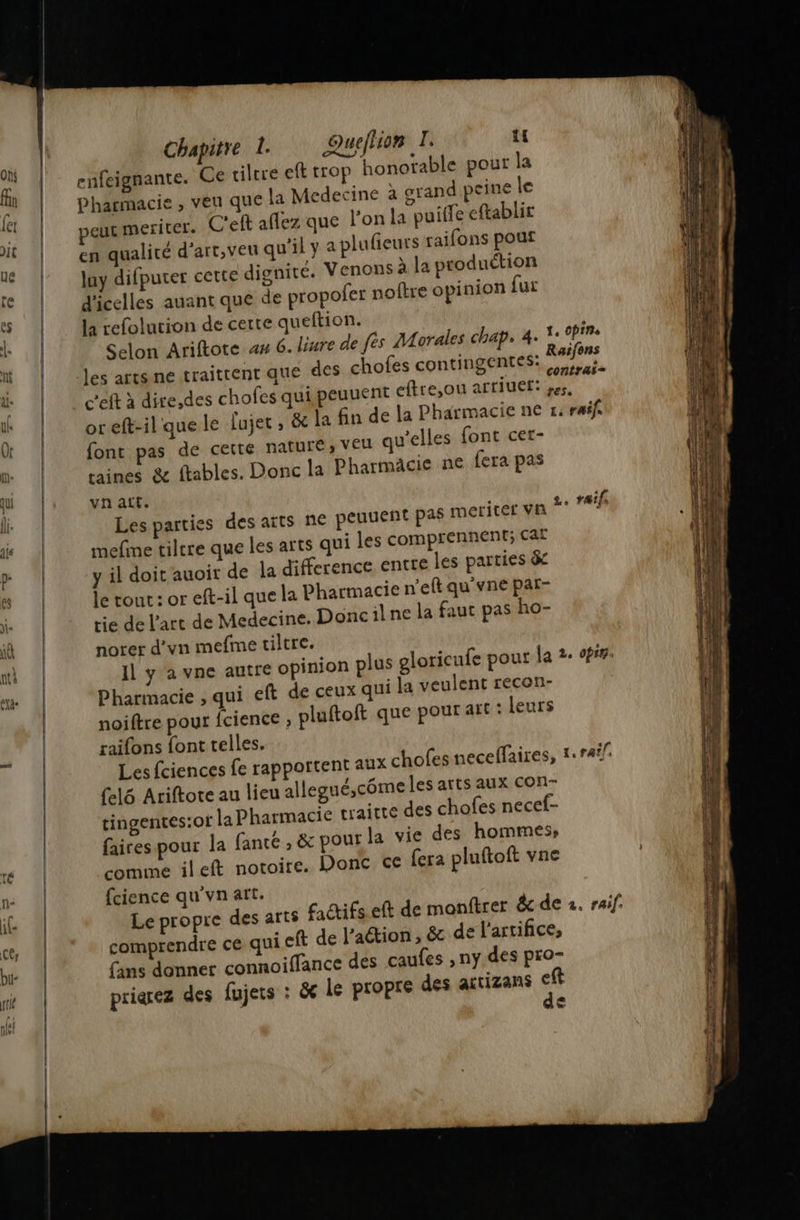 Chapitre I. Queſtion I. 11
enſeignante. Ce tiltre eſt trop honorable pour la
Pharmacie , veu que la Medecine à grand peine le
peut meriter. C'eſt aſſez que l'on la puiſſe eſtablir
en qualité d'art,veu qu'il y a pluſieurs raiſons pour
luy diſputer cette dignité. Venons à la production
d'icelles auant que de propoſer noſtre opinion ſur
la reſolution de cette queſtion.
Selon Ariſtote au 6. liure de ſes Morales chap. 4. 1. opin.
les arts ne traittent que des choſes contingentes: Raiſons
c'eſt à dire,des choſes qui peuuent eſtre,ou arriuer: contrai-
or eſt-il que le ſujet , & la fin de la Pharmacie ne res.
ſont pas de cette nature, veu qu'elles ſont cer- 1. raiſ.
taines & ſtables. Donc la Pharmacie ne ſera pas
vn art.
Les parties des arts ne peuuent pas meriter vn 2. raiſ.
meſme tiltre que les arts qui les comprennent; car
y il doit auoir de la difference entre les parties &
le tout: or eſt-il que la Pharmacie n'eſt qu'vne par-
tie de l'art de Medecine. Donc il ne la faut pas ho-
norer d'vn meſme tiltre.
Il y a vne autre opinion plus glorieuſe pour la 2. opin.
Pharmacie , qui eſt de ceux qui la veulent recon-
noiſtre pour ſcience , pluſtoſt que pour art : leurs
raiſons ſont telles.
Les ſciences ſe rapportent aux choſes neceſſaires, 1. raiſ.
ſelõ Ariſtote au lieu allegué,cõme les arts aux con-
tingentes:or la Pharmacie traitte des choſes neceſ-
ſaires pour la ſanté , & pour la vie des hommes,
comme il eſt notoire. Donc ce ſera pluſtoſt vne
ſcience qu'vn art.
Le propre des arts factifs eſt de monſtrer & de 2. raiſ.
comprendre ce qui eſt de l'action , & de l'artifice,
ſans donner connoiſſance des cauſes , ny des pro-
prietez des ſujets : & le propre des artizans eſt
de